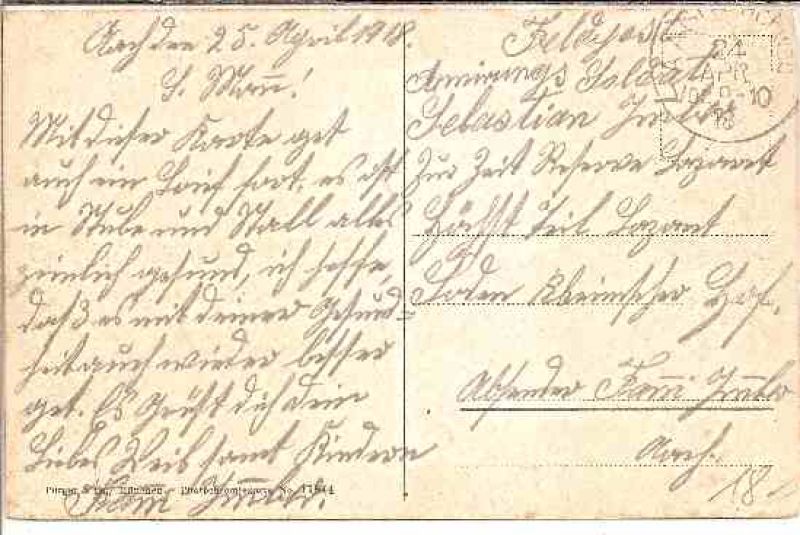 Aach den 25. April 1918.
L. Mann!
Mit dieser Karte get
auch ein Brief fort, es ist
in Stube und Stall alles
zimlich gesund, ich hoffe,
daß es mit deiner Gesund=
heit auch wieder besser
get. Es Grüßt dich dein
Liebes Weib samt Kindern
Fam
Feldpost
Armirungs Soldat
Sebastian
Zur Zeit Reserve Lazaret
Höchst Teil Lazaret
Soden
Absender Fam
Aach.
24
APR
18
München. – Photochromiekarte No. 17644
18-